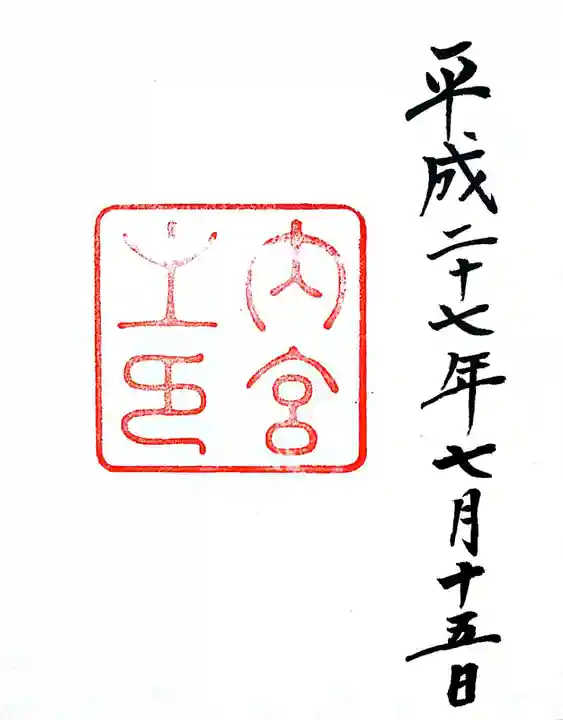 平成二十七年七月十五日
内宮
之印